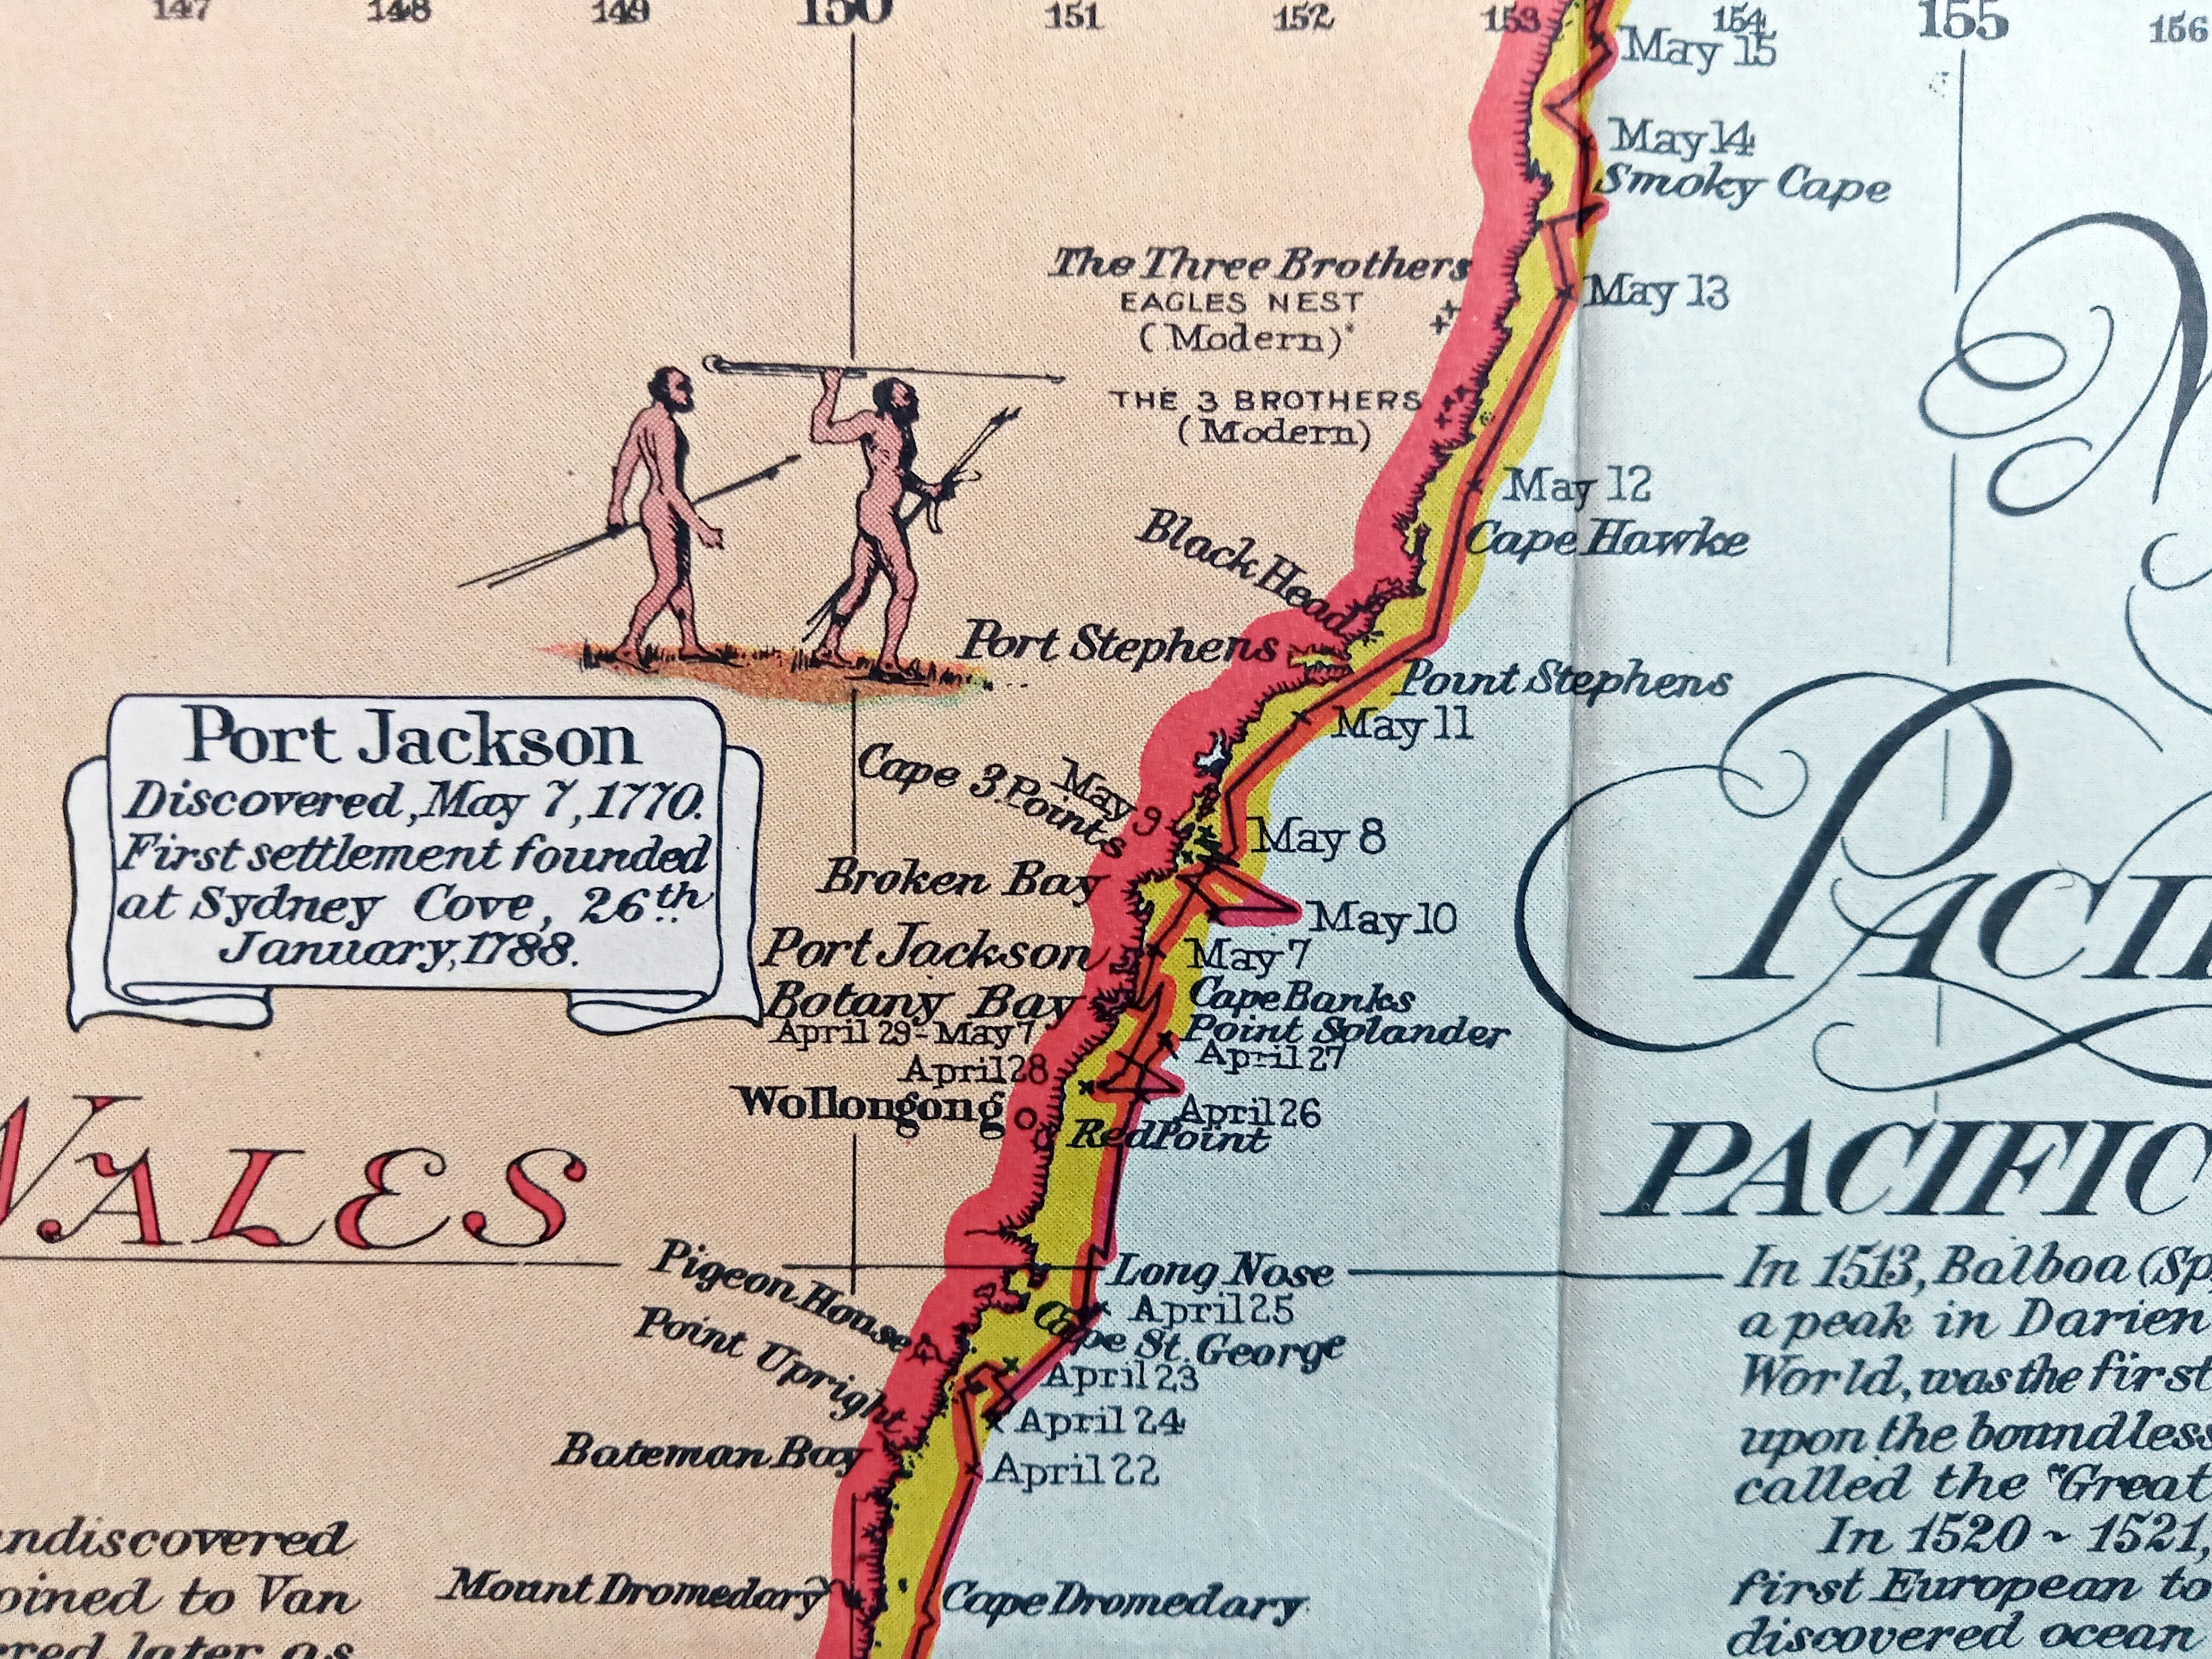 147 148 149 150 151 152 153 154 155 156
May 15
May 14
Smoky Cape
The Three Brothers
EAGLES NEST
(Modern)
May 13
THE 3 BROTHERS
(Modern)
May 12
Cape Hawke
Black Head
Port Stephens
Point Stephens
May 11
Port Jackson
Discovered, May 7, 1770.
First settlement founded
at Sydney Cove, 26th
January, 1788.
Cape 3 Points
May 9
May 8
Broken Bay
May 10
Port Jackson
May 7
Botany Bay
April 29-May 7
Cape Banks
Point Solander
April 27
April 28
Wollongong
April 26
Red Point
WALES
PACI
PACIFIC
Long Nose
Pigeon House
April 25
Cape St. George
Point Upright
April 23
April 24
Bateman Bay
April 22
Mount Dromedary
Cape Dromedary
In 1513, Balboa (Sp
a peak in Darien
World, was the first
upon the boundless
called the "Great
In 1520 ~ 1521,
first European to
discovered ocean
ndiscovered
oined to Van
rred later as